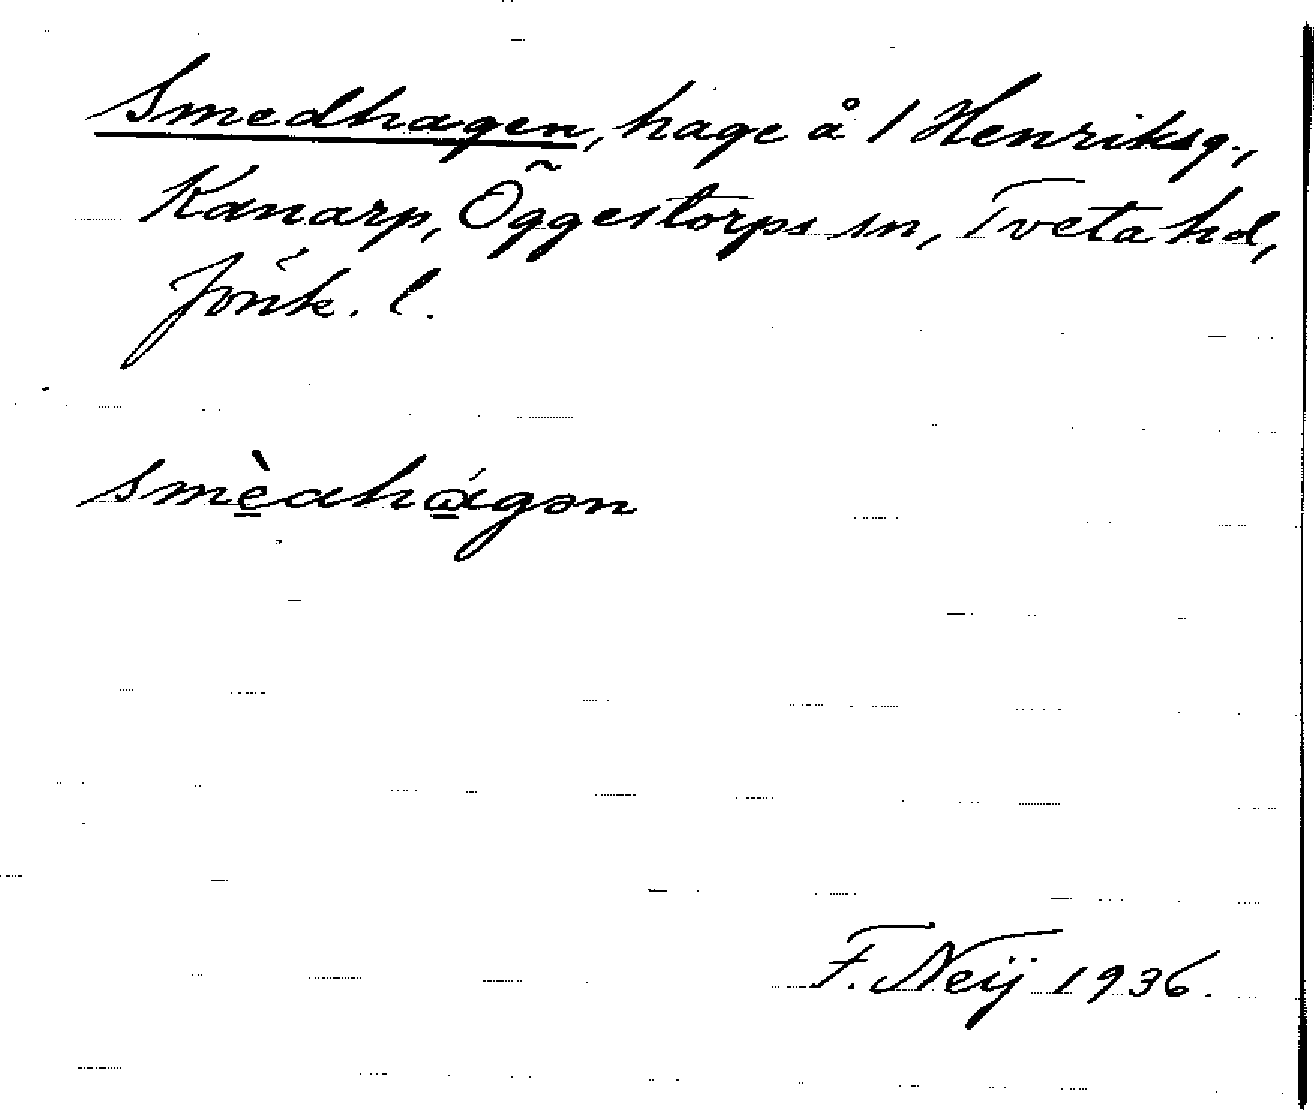 Smedhagen, hage å 1 Henriksg.,
Kanarp, Öggestorps sn, Tveta hd,
Jönk. l.
smè̱dahά̱gən
F. Neij 1936.